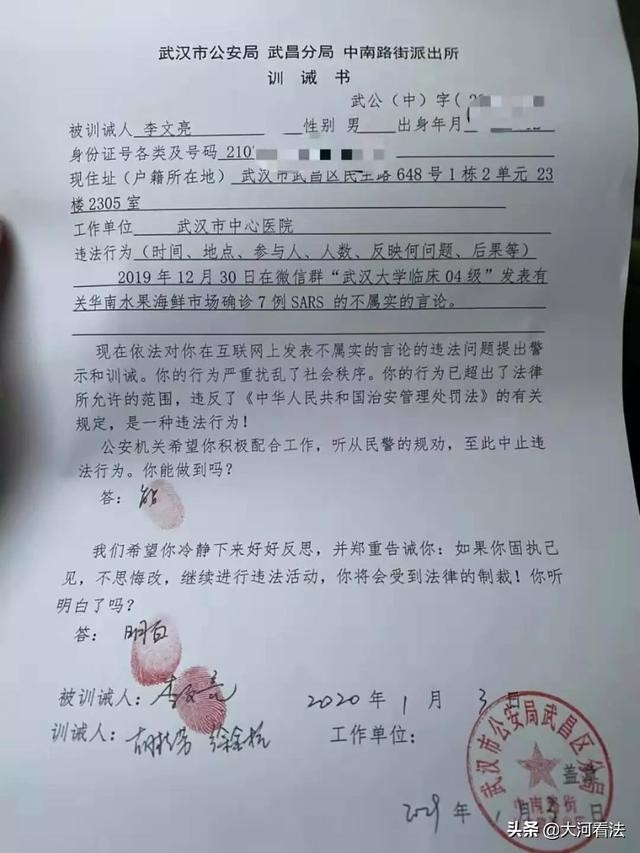 武汉市公安局 武昌分局 中南路街派出所
训 诫 书
武公（中）字（
被训诫人 李文亮 性别 男 出身年月
身份证号各类及号码 210
现住址（户籍所在地） 武汉市武昌区民主路 648 号 1 栋 2 单元 23
楼 2305 室
工作单位 武汉市中心医院
违法行为（时间、地点、参与人、人数、反映何问题、后果等）
2019 年 12 月 30 日在微信群“武汉大学临床 04 级”发表有
关华南水果海鲜市场确诊 7 例 SARS 的不属实的言论。
现在依法对你在互联网上发表不属实的言论的违法问题提出警
示和训诫。你的行为严重扰乱了社会秩序。你的行为已超出了法律
所允许的范围，违反了《中华人民共和国治安管理处罚法》的有关
规定，是一种违法行为！
公安机关希望你积极配合工作，听从民警的规劝，至此中止违
法行为。你能做到吗？
答：能
我们希望你冷静下来好好反思，并郑重告诫你：如果你固执己
见，不思悔改，继续进行违法活动，你将会受到法律的制裁！你听
明白了吗？
答：明白
被训诫人：李文亮 2020 年 1 月 3 日
训诫人： 工作单位：
武汉市公安局武昌区分局
中南路街
盖章
年 1 月 3 日
头条 @大河看法